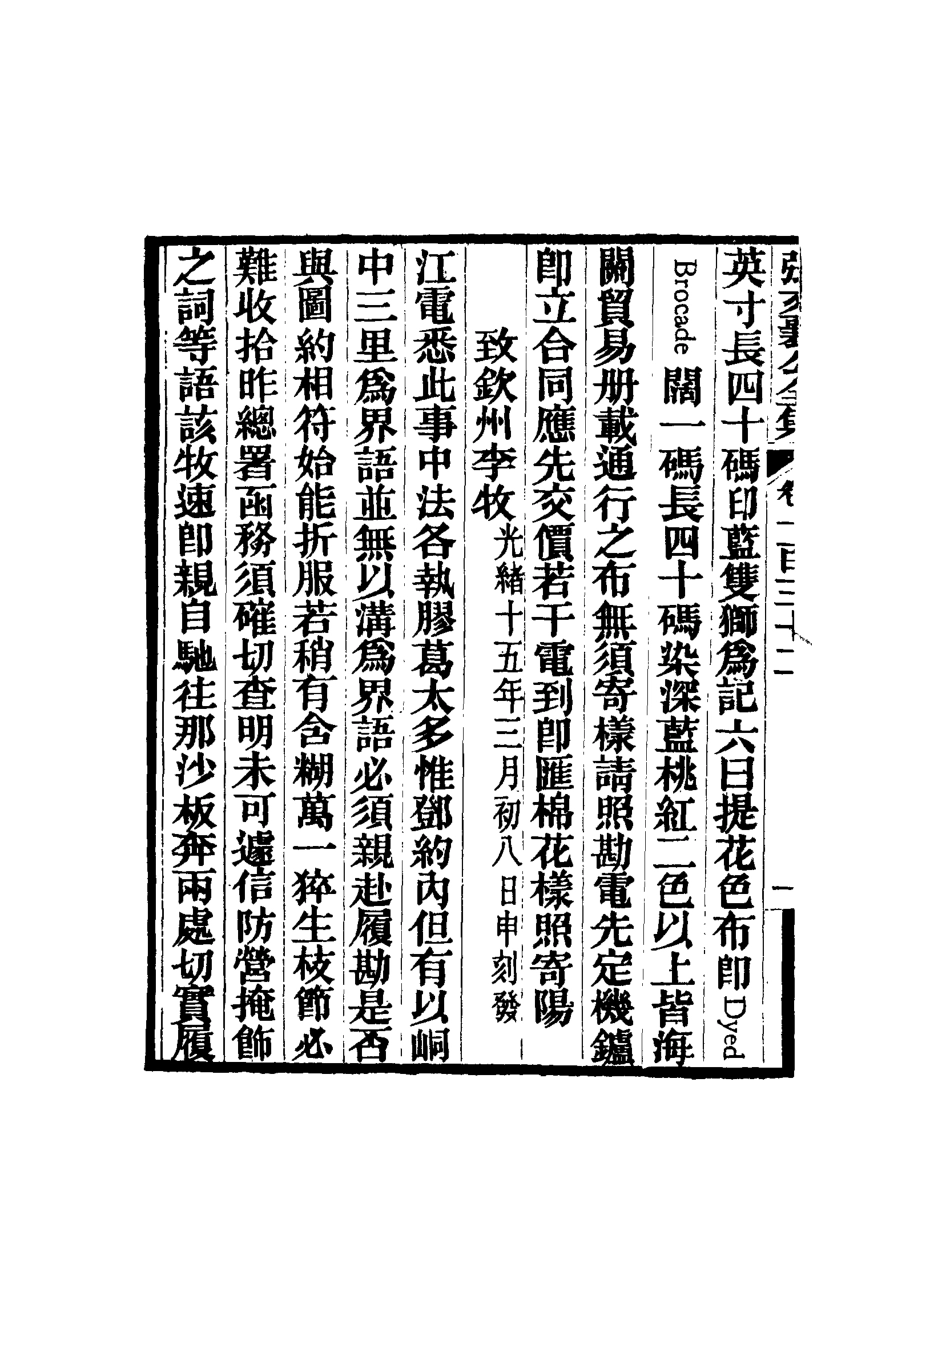 張文襄公全集 卷一百三十二 一
英寸長四十碼印藍雙獅爲記六曰提花色布卽Dyed
Brocade闊一碼長四十碼染深藍桃紅二色以上皆海
關貿易册載通行之布無須寄樣請照勘電先定機鑪
卽立合同應先交價若干電到卽匯棉花樣照寄陽
致欽州李牧光緒十五年三月初八日申刻發
江電悉此事中法各執膠葛太多惟鄧約內但有以峒
中三里爲界語並無以溝爲界語必須親赴履勘是否
與圖約相符始能折服若稍有含糊萬一猝生枝節必
難收拾昨總署函務須確切查明未可遽信防營掩飾
之詞等語該牧速卽親自馳往那沙板奔兩處切實履